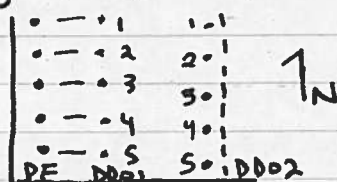 1 1
2 2
3 3
4 4 N
5 5
PE DD01 DD02